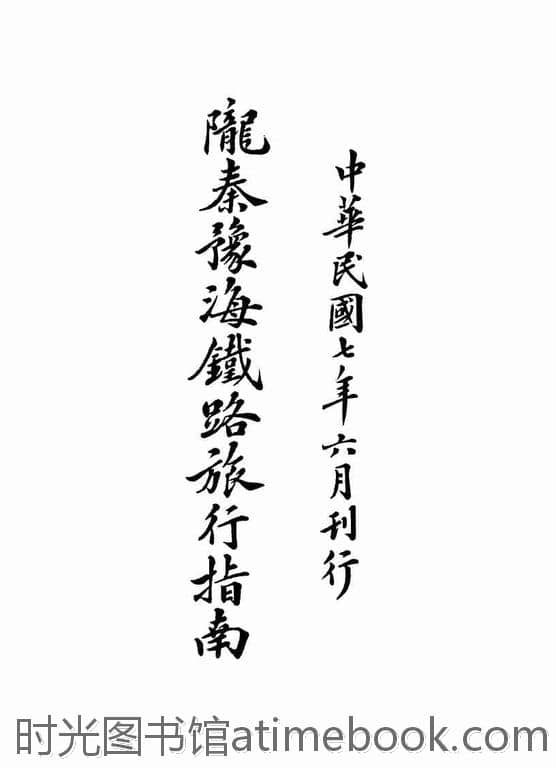 中華民國七年六月刊行
隴秦豫海鐵路旅行指南
时光图书馆atimebook.com